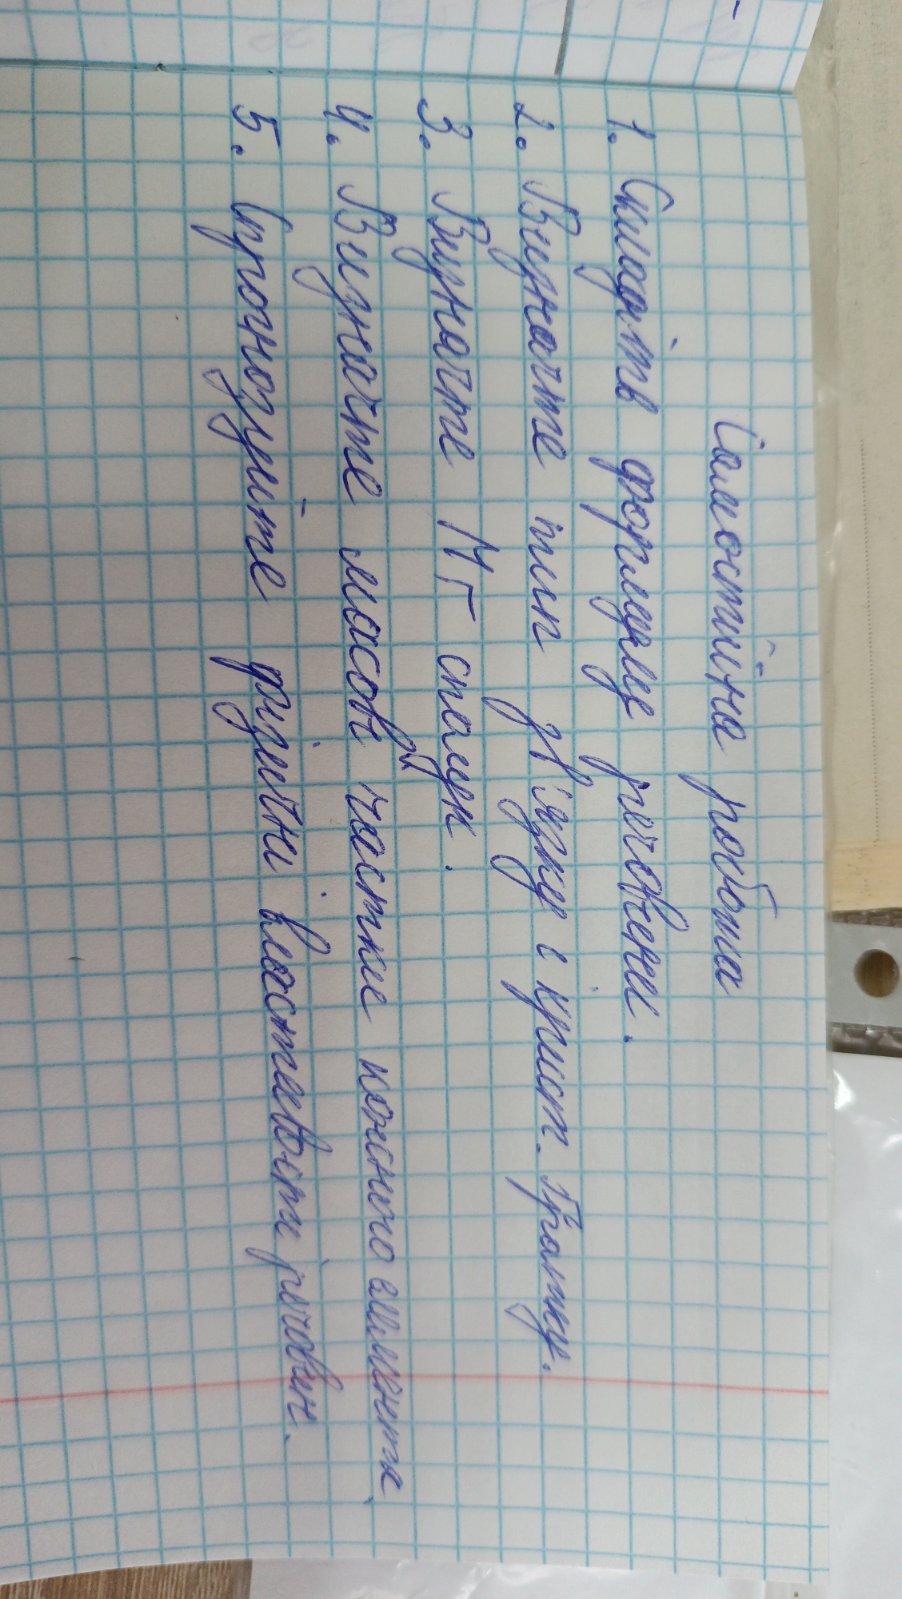 Самостійна робота
1. Складіть формули речовени.
2. Визначте тип зв'язку і крист. гратку.
3. Визначте Mr сполук.
4. Визначте масові частки кожного елемента.
5. Спрогнозуйте фізичні властивости речовин.